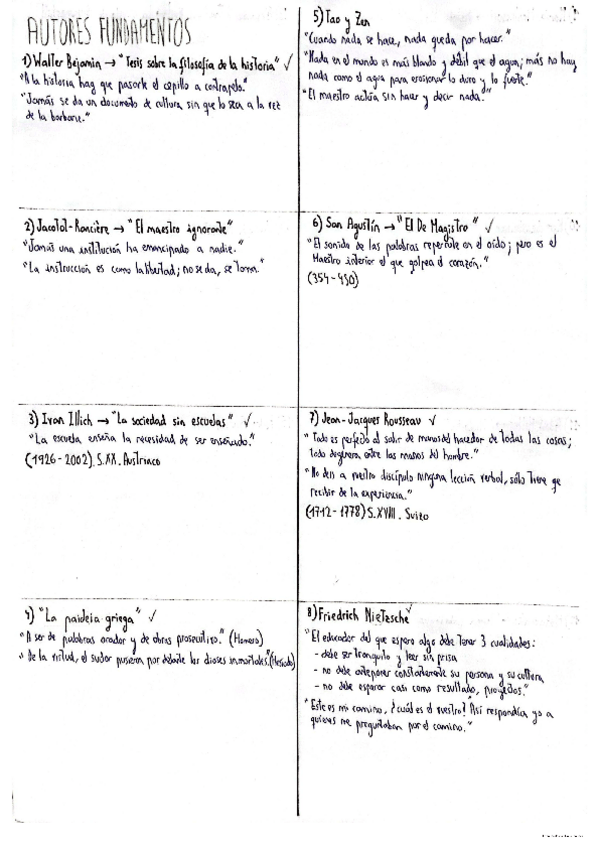 AUTORES FUNDAMENTOS
1) Walter Bejamin → "Tesis sobre la filosofía de la historia" ✓
"A la historia hay que pasarle el cepillo a contrapelo."
"Jamás se da un documento de cultura, sin que lo sea a la vez
de la barbarie."
2) Jacotot-Rancière → "El maestro ignorante"
"Jamás una institución ha emancipado a nadie."
"La instrucción es como la libertad; no se da, se toma."
3) Ivan Illich → "La sociedad sin escuelas" ✓
"La escuela enseña la necesidad de ser enseñado."
(1926-2002). S.XX. Austriaco
4) "La paideia griega" ✓
"A ser de palabras orador y de obras prosecutivo." (Homero)
"De la virtud, el sudor pusieron por delante los dioses inmortales."(Hesíodo)
5) Tao y Zen
"Cuando nada se hace, nada queda por hacer."
"Nada en el mundo es más blando y débil que el agua; más no hay
nada como el agua para erosionar lo duro y lo fuerte."
"El maestro actúa sin hacer y decir nada."
6) San Agustín → "El De Magistro" ✓
"El sonido de las palabras repercute en el oído; pero es el
Maestro interior el que golpea el corazón."
(354-430)
7) Jean-Jacques Rousseau ✓
"Todo es perfecto al salir de manos del hacedor de todas las cosas;
todo degenera entre las manos del hombre."
"No deis a vuestro discípulo ninguna lección verbal, sólo tiene qe
recibir de la experiencia."
(1712-1778) S.XVIII. Suizo
8) Friedrich Nietzsche ✓
"El educador del que espero algo debe tener 3 cualidades:
- debe ser tranquilo y leer sin prisa
- no debe anteponer constantemente su persona y su cultura
- no debe esperar casi como resultado, proyectos."
"Este es mi camino, ¿cuál es el vuestro? Así respondía yo a
quienes me preguntaban por el camino."